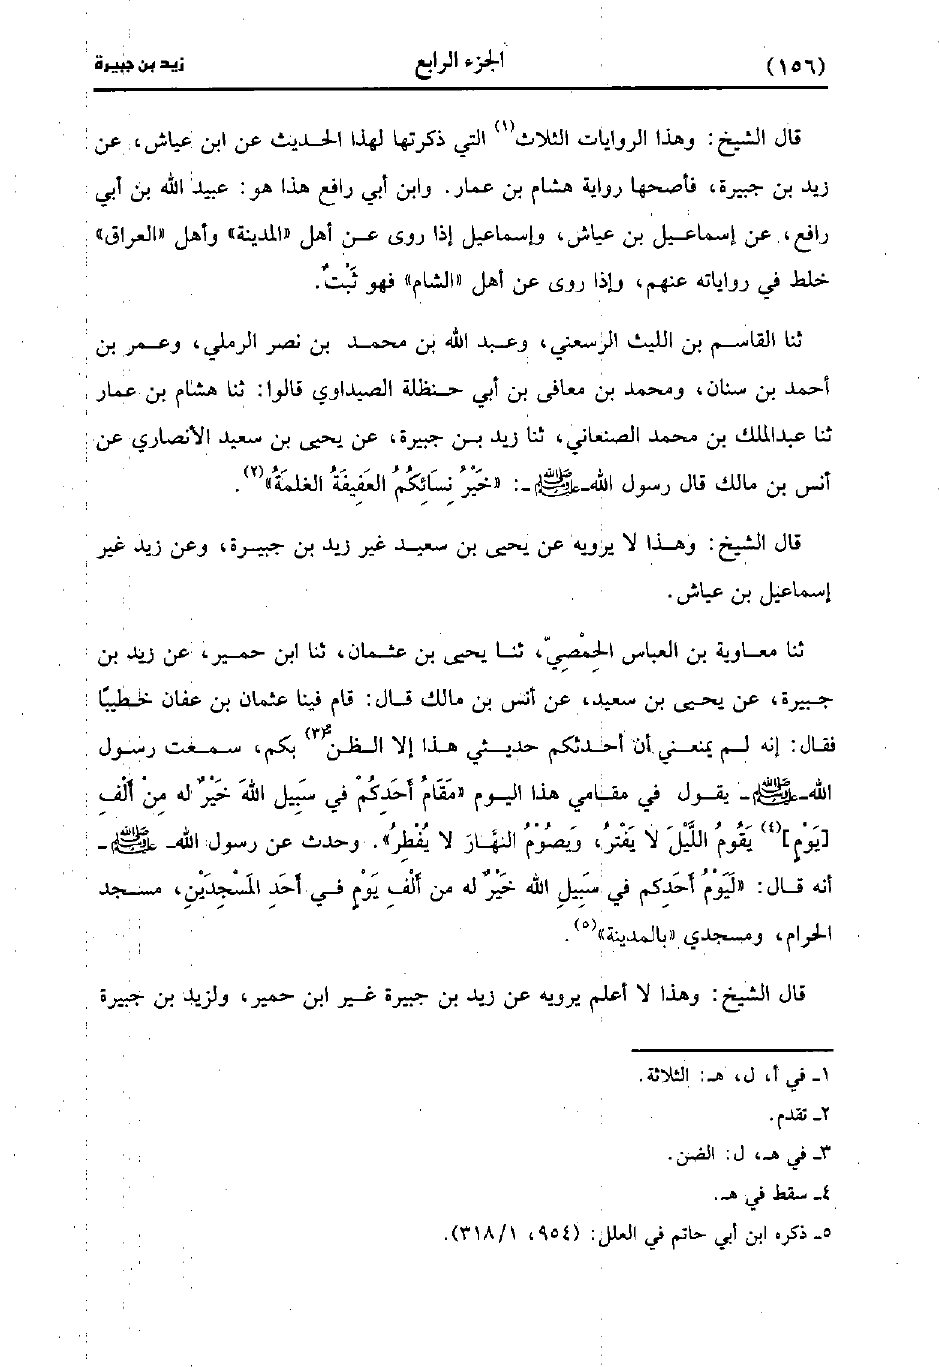 (١٥٦) الجزء الرابع زيد بن جبيرة
قال الشيخ: وهذا الروايات الثلاث(١) التي ذكرتها لهذا الحديث عن ابن عياش، عن
زيد بن جبيرة، فأصحها رواية هشام بن عمار. وابن أبي رافع هذا هو: عبيد الله بن أبي
رافع، عن إسماعيل بن عياش، وإسماعيل إذا روى عن أهل «المدينة» وأهل «العراق»
خلط في رواياته عنهم، وإذا روى عن أهل «الشام» فهو ثَبْتٌ.
ثنا القاسم بن الليث الرسعني، وعبد الله بن محمد بن نصر الرملي، وعمر بن
أحمد بن سنان، ومحمد بن معافى بن أبي حنظلة الصيداوي قالوا: ثنا هشام بن عمار
ثنا عبدالملك بن محمد الصنعاني، ثنا زيد بن جبيرة، عن يحيى بن سعيد الأنصاري عن
أنس بن مالك قال رسول الله-ﷺ-: «خَيْرُ نِسَائِكُمُ العَفِيفَةُ الغَلمَةُ»(٢).
قال الشيخ: وهذا لا يرويه عن يحيى بن سعيد غير زيد بن جبيرة، وعن زيد غير
إسماعيل بن عياش.
ثنا معاوية بن العباس الحِمْصِيّ، ثنا يحيى بن عثمان، ثنا ابن حمير، عن زيد بن
جبيرة، عن يحيى بن سعيد، عن أنس بن مالك قال: قام فينا عثمان بن عفان خطيبًا
فقال: إنه لم يمنعني أن أحدثكم حديثي هذا إلا الظن(٣) بكم، سمعت رسول
الله-ﷺ- يقول في مقامي هذا اليوم «مَقَامُ أَحَدِكُمْ في سَبِيل اللهَ خَيْرٌ له مِنْ أَلْفِ
[يَوْمٍ](٤) يَقُومُ اللَّيْلَ لا يَفْتَرُ، وَيَصُوْمُ النَّهَارَ لا يُفْطِرُ». وحدث عن رسول الله- ﷺ -
أنه قال: «لَيَوْمُ أَحَدِكم في سَبِيلِ الله خَيْرٌ له من أَلْفِ يَوْمٍ في أَحَدِ المَسْجِدَيْنِ، مسجد
الحرام، ومسجدي «بالمدينة»(٥).
قال الشيخ: وهذا لا أعلم يرويه عن زيد بن جبيرة غير ابن حمير، ولزيد بن جبيرة
١ـ في أ، ل، هـ: الثلاثة.
٢ـ تقدم.
٣ـ في هـ، ل: الضن.
٤ـ سقط في هـ.
٥ـ ذكره ابن أبي حاتم في العلل: (٩٥٤، ٣١٨/١).